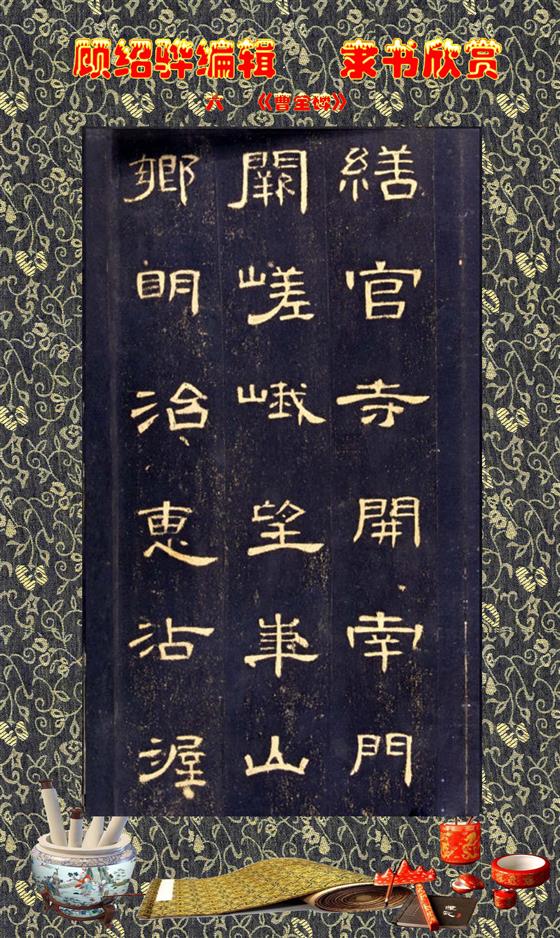 顾绍骅编辑 隶书欣赏
六 《曹全碑》
繕官寺開南門
闕嵯峨望華山
鄉明治惠沾渥